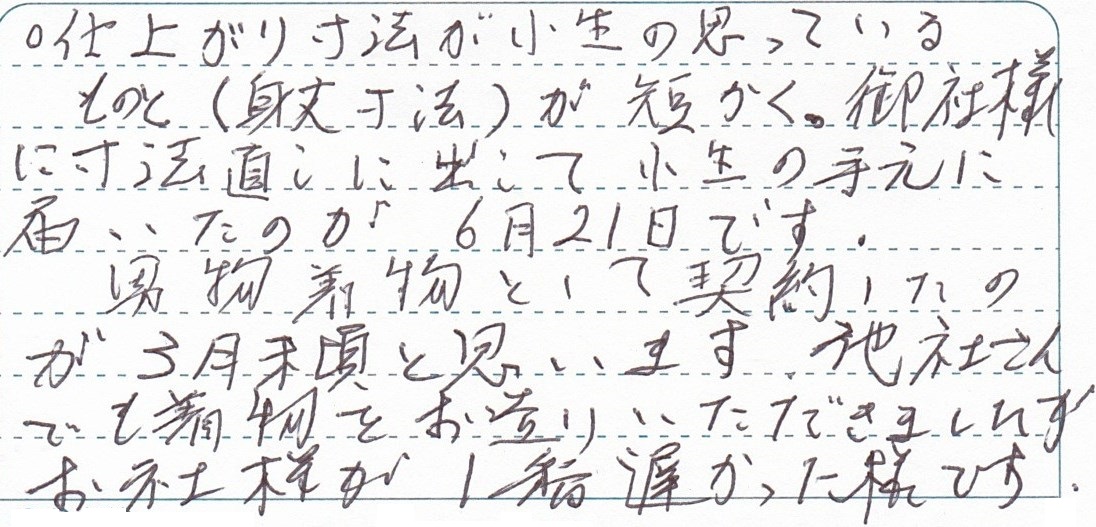 ○仕上がり寸法が小生の思っている
ものと(身丈寸法)が短かく。御社様
に寸法直しに出して小生の手元に
届いたのが6月21日です.
男物着物として契約したの
が3月末頃と思います.他社さん
でも着物をお造りいただきましたが
お社様が1番遅かった様です.